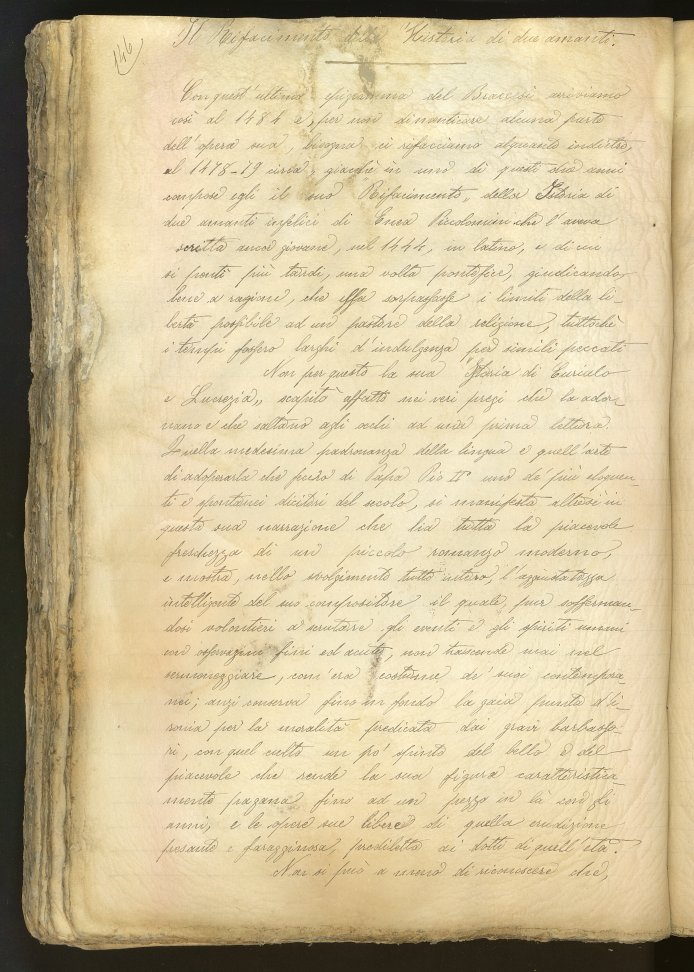 146
Il Rifacimento della Historia di due amanti.
Con quest'ultimo epigramma del Braccesi arriviamo
così al 1484 e, per non dimenticare alcuna parte
dell'opera sua, bisogna ci rifacciamo alquanto indietro,
al 1478-79 circa, giacchè in uno di questi due anni
compose egli il suo "Rifacimento" della Istoria di
due amanti infelici di Enea Piccolomini che l'aveva
scritta ancor giovane, nel 1444, in latino, e di cui
si pentì più tardi, una volta pontefice, giudicando,
bene a ragione, che essa sorpassasse i limiti della li-
bertà possibile ad un pastore della religione, tuttochè
i tempi fossero larghi d'indulgenza per simili peccati
Non per questo la sua "Storia di Eurialo
e Lucrezia" scapitò affatto nei veri pregi che la ador-
nano e che saltano agli occhi ad una prima lettura.
Quella medesima padronanza della lingua e quell'arte
di adoperarla che fecero di Papa Pio II° uno de' più eloquen-
ti e spontanei dicitori del secolo, si manifesta altresì in
questa sua narrazione che ha tutta la piacevole
freschezza di un piccolo romanzo moderno,
e mostra, nello svolgimento tutto intero, l'aggiustatezza
intelligente del suo compositore il quale, pur sofferman-
dosi volontieri a scrutare gli eventi e gli spiriti umani
con osservazioni fini ed acute, non trascende mai nel
sermoneggiare, com'era costume de' suoi contempora-
nei; anzi conserva fino in fondo la gaia punta d'i-
ronia per la moralità predicata dai gravi barbasso-
ri, con quel culto un po' spinto del bello e del
piacevole che rende la sua figura caratteristica-
mente pagana fino ad un pezzo in là con gli
anni, e le opere sue libere di quella erudizione
pesante e farragginosa, prediletta ai dotti di quell'età.
Non si può a meno di riconoscere che,